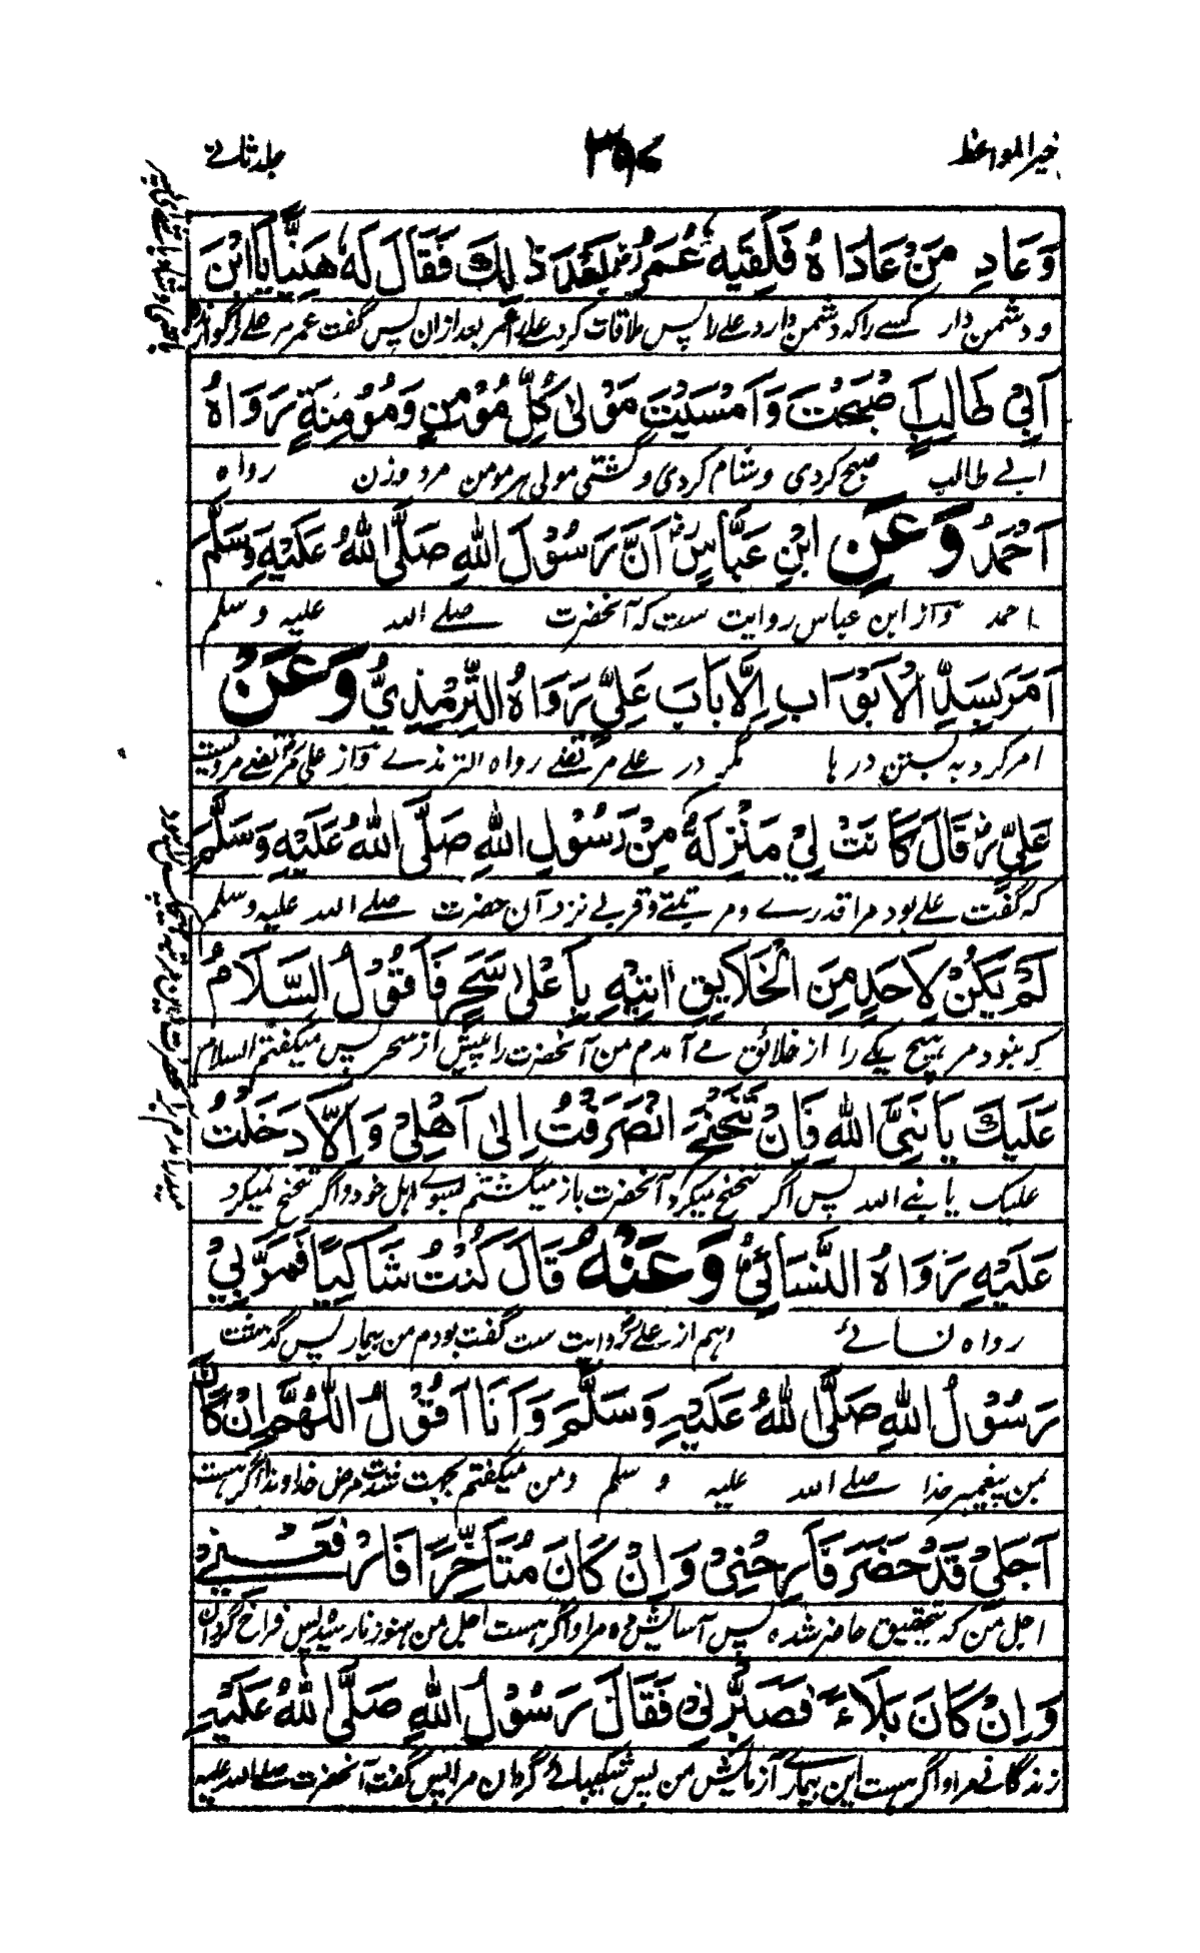 خیر المواعظ ۳۹۸ جلد ثانے
وَعَادِ مَنْ عَادَاهُ فَلَقِيَهُ عُمَرُ بَعْدَ ذٰلِكَ فَقَالَ لَهٗ هَنِيْئًا يَا ابْنَ
و دشمن دار کسے را که دشمن دارد علے را پس ملاقات کرد علے را عمر بعد ازان پس گفت عمر مر علے را گوارا
اَبِيْ طَالِبٍ صْبَحْتَ وَاَمْسَيْتَ مَوْلٰى كُلِّ مُؤْمِنٍ وَمُؤْمِنَةٍ رَوَاهُ
ابے طالب صبح کردی و شام کردی و گشتی مولی هر مومن مرد و زن رواه
اَحْمَدُ وَعَنِ ابْنِ عَبَّاسٍ اَنَّ رَسُوْلَ اللهِ صَلَّى اللهُ عَلَيْهِ وَسَلَّمَ
احمد و از ابن عباس روایت ست که آنحضرت صلے الله علیه و سلم
اَمَرَ بِسَدِّ الْاَبْوَابِ اِلَّا بَابَ عَلِيٍّ رَوَاهُ التِّرْمِذِيُّ وَعَنْ
امر کرد به بستن در ها مگر در علے مرتضے رواه الترمذے و از علی مرتضے مرویست
عَلِيٍّ قَالَ كَانَتْ لِيْ مَنْزِلَةٌ مِنْ رَسُوْلِ اللهِ صَلَّى اللهُ عَلَيْهِ وَسَلَّمَ
که گفت علے بود مرا قدرے و مرتبتے و قربے نزد آن حضرت صلے الله علیه و سلم
لَمْ يَكُنْ لِاَحَدٍ مِنَ الْخَلَايِقِ اٰتِيْهِ بِاَعْلٰى سَحَرٍ فَاَقُوْلُ السَّلَامُ
که نبود مر هیچ یکے را از خلائق مے آمدم من آنحضرت را پیش از سحر پس میگفتم السلام
عَلَيْكَ يَا نَبِيَّ اللهِ فَاِنْ تَنَحْنَحَ انْصَرَفْتُ اِلٰى اَهْلِيْ وَاِلَّا دَخَلْتُ
علیک یا نبے الله پس اگر تنحنح میکرد آنحضرت باز میگشتم بسوے اهل خود و اگر تنحنح نمیکرد
عَلَيْهِ رَوَاهُ النَّسَائِيُّ وَعَنْهُ قَالَ كُنْتُ شَاكِيًا فَمَرَّ بِيْ
رواه نسائے و هم از علے روایت ست گفت بودم من بیمار پس گذشت
رَسُوْلُ اللهِ صَلَّى اللهُ عَلَيْهِ وَسَلَّمَ وَاَنَا اَقُوْلُ اللّٰهُمَّ اِنْ كَانَ
بمن پیغمبر خدا صلے الله علیه و سلم و من میگفتم بجهت شدت مرض خداوندا اگر هست
اَجَلِيْ قَدْ حَضَرَ فَاَرِحْنِيْ وَاِنْ كَانَ مُتَاَخِّرًا فَارْفَعْنِيْ
اجل من که بتحقیق حاضر شده پس آسایش ده مرا و اگر هست اجل من هنوز نارسیده پس فراخ گردان
وَاِنْ كَانَ بَلَاءً فَصَبِّرْنِيْ فَقَالَ رَسُوْلُ اللهِ صَلَّى اللهُ عَلَيْهِ
زندگانے مرا و اگر هست این بیمارے آزمایش من پس شکیبائے گردان مرا پس گفت آنحضرت صلے الله علیه